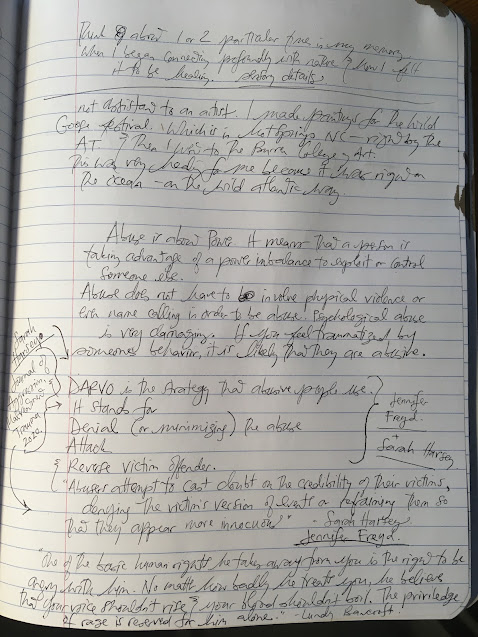 Think of about 1 or 2 particular times in my memory
when I began connecting profoundly with nature & how I felt
it to be healing. Sensory details
not artist to an artist. I made paintings for the Wild
Goose festival. Which is in Hot Springs NC - right by the
AT & Then I went to the Burren College of Art.
This was very healing for me because it was right on
the ocean - on the wild atlantic way
Abuse is about Power. It means that a person is
taking advantage of a power imbalance to exploit or control
someone else.
Abuse does not have to involve physical violence or
even name calling in order to be abuse. Psychological abuse
is very damaging. If you feel traumatized by
someones behavior, it is likely that they are abusive.
DARVO is the strategy that abusive people use.
It stands for
Denial (or minimizing) the abuse
Attack
Reverse victim offender.
Jennifer
Freyd
+
Sarah Harsey
Sarah
Harsey
Journal of
Aggression
Maltreatment &
Trauma
2020
"Abusers attempt to cast doubt on the credibility of their victims,
denying the victim's version of events & reframing them so
that they appear more innocuous" - Sarah Harsey
Jennifer Freyd.
"One of the basic human rights he takes away from you is the right to be
angry with him. No matter how badly he treats you, he believes
that your voice shouldn't rise & your blood shouldn't boil. The priviledge
of rage is reserved for him alone." - Lundy Bancroft